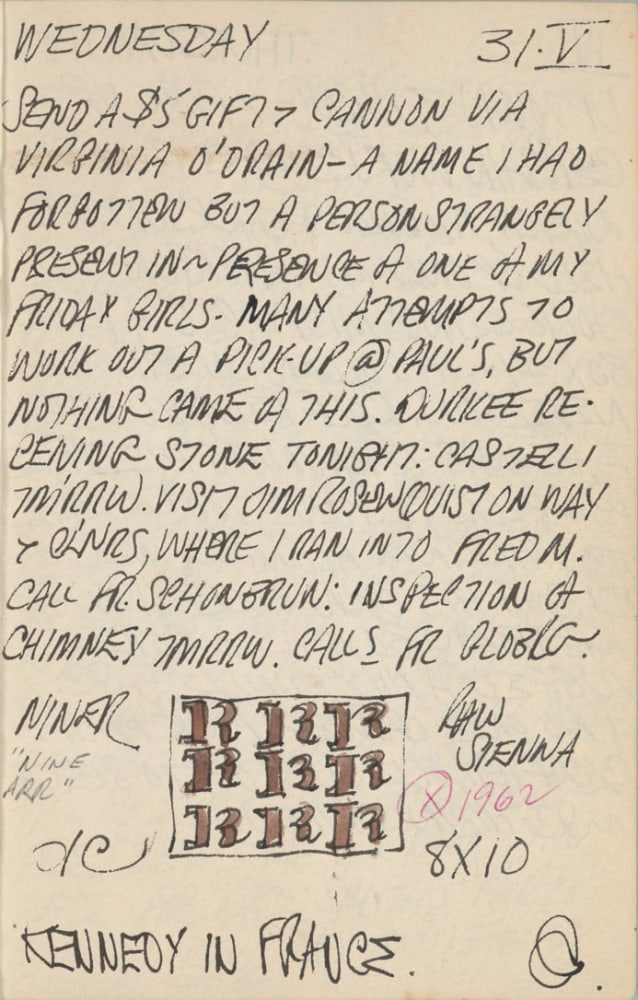 WEDNESDAY 31·V
SEND A $5 GIFT > CANNON VIA
VIRGINIA O'DRAIN— A NAME I HAD
FORGOTTEN BUT A PERSON STRANGELY
PRESENT IN ~ PRESENCE OF ONE OF MY
FRIDAY GIRLS. MANY ATTEMPTS TO
WORK OUT A PICK-UP @ PAUL'S, BUT
NOTHING CAME OF THIS. DURKEE RE-
CEIVING STONE TONIGHT: CASTELLI
TMRRW. VISIT JIM ROSENQUIST ON WAY
> CLNRS, WHERE I RAN INTO FRED M.
CALL FR. SCHONBRUN: INSPECTION OF
CHIMNEY TMRRW. CALLS FR
NINER
"NINE
ARR"
R R R
R R R
R R R
RAW
SIENNA
X 1962
8X10
KENNEDY IN FRANCE.